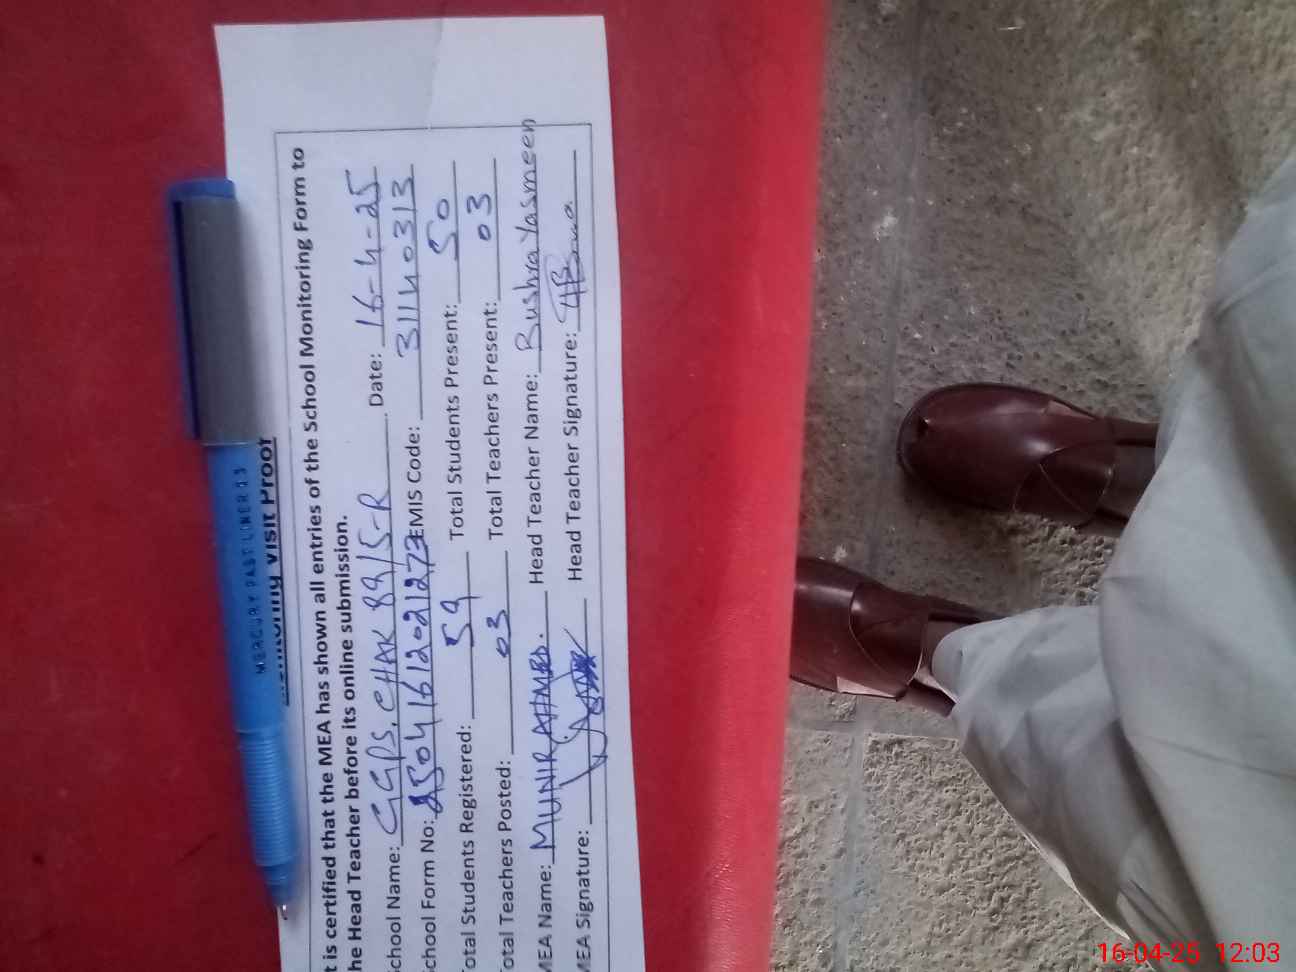 Monitoring Visit Proof
t is certified that the MEA has shown all entries of the School Monitoring Form to
he Head Teacher before its online submission.
chool Name: GGPS. CHAK 89/5-R Date: 16-4-25
chool Form No: 25041612021273 EMIS Code: 31140313
otal Students Registered: 59 Total Students Present: 50
otal Teachers Posted: 03 Total Teachers Present: 03
MEA Name: MUNIR AHMED. Head Teacher Name: Bushra Yasmeen
MEA Signature: Head Teacher Signature:
MERCURY FAST LINER 0.5
16-04-25 12:03